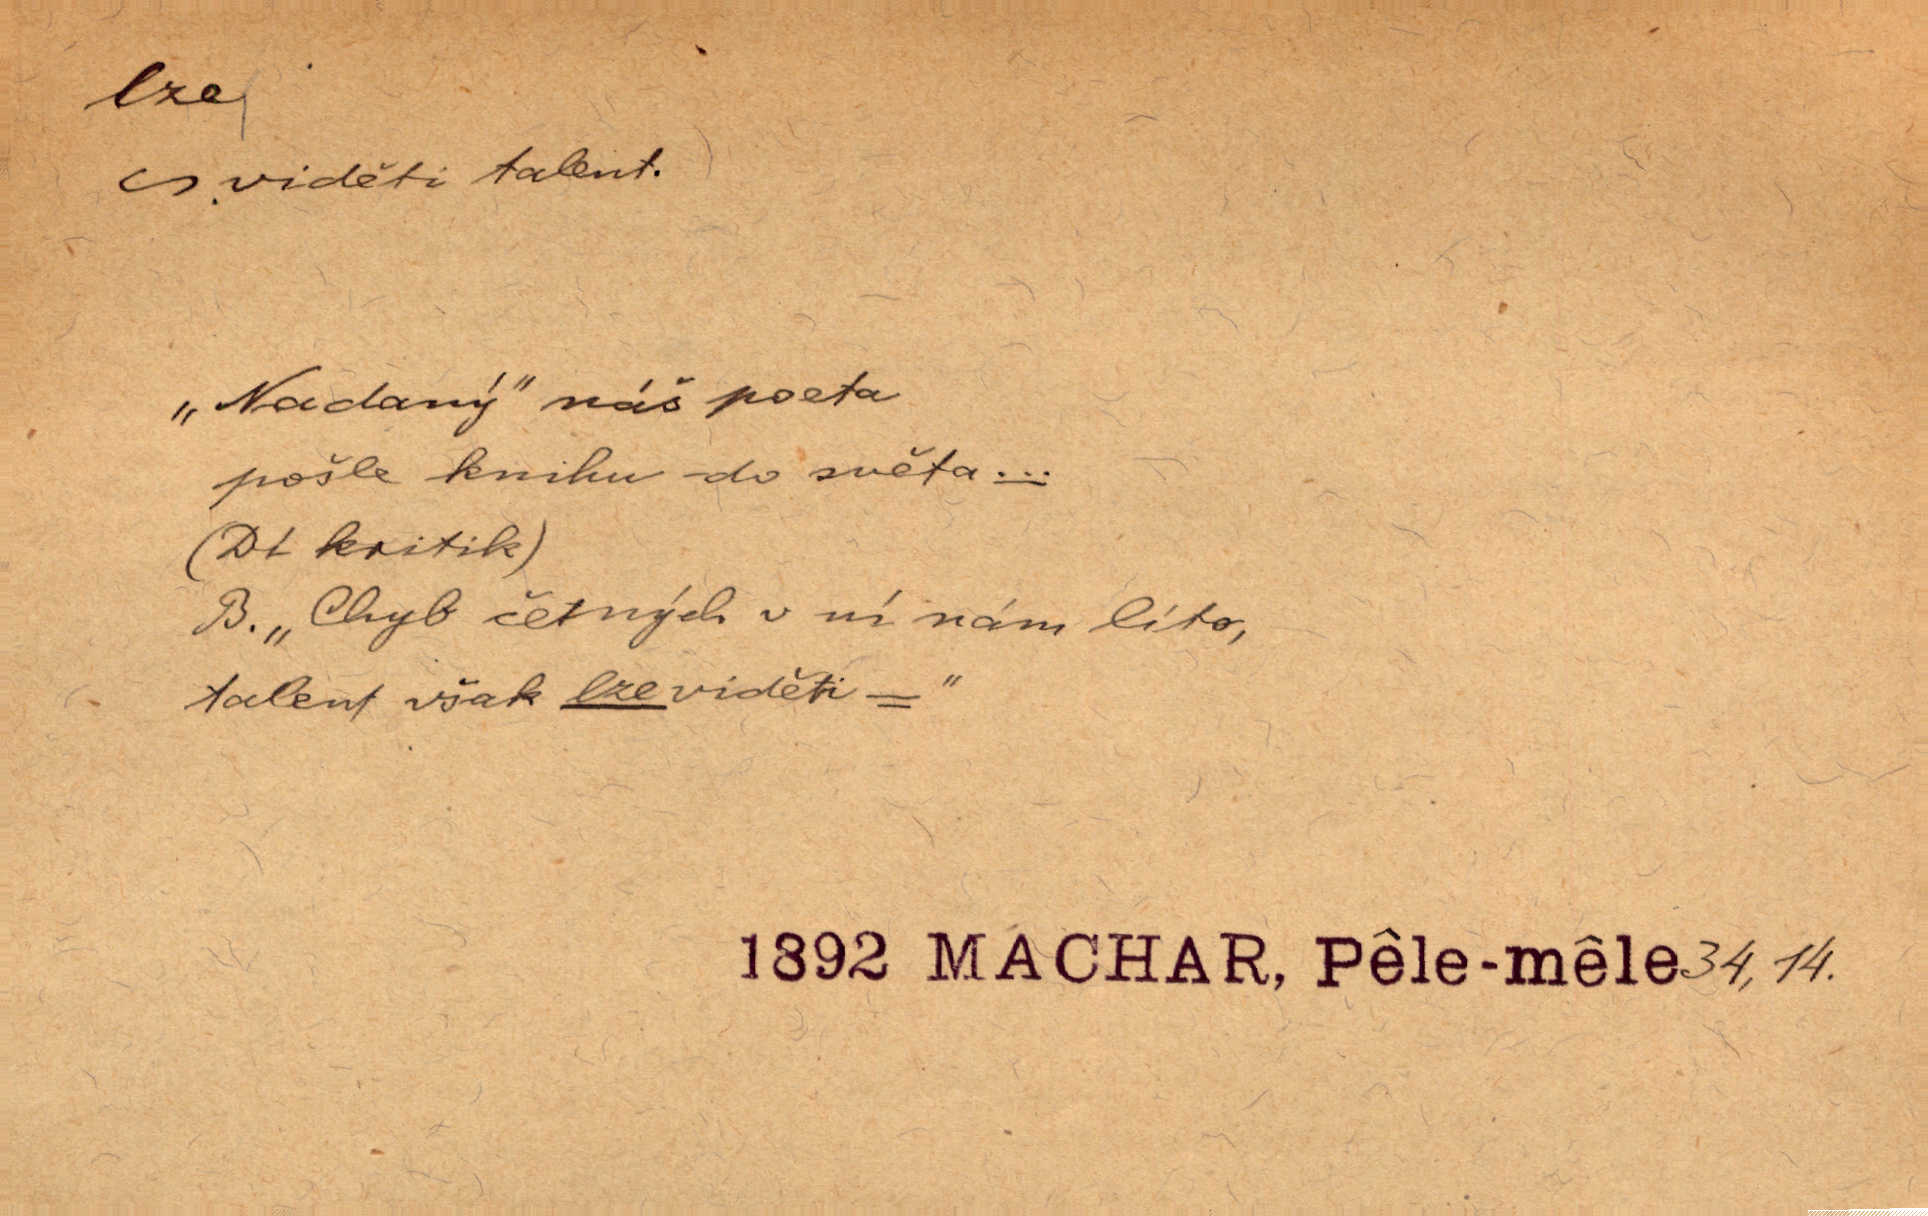 lze
∽ viděti talent.
„Nadaný" náš poeta
pošle knihu do světa ...
(Dí kritik)
B. „Chyb četných v ní nám líto,
talent však lze viděti ="
1892 MACHAR, Pêle-mêle 34, 14.